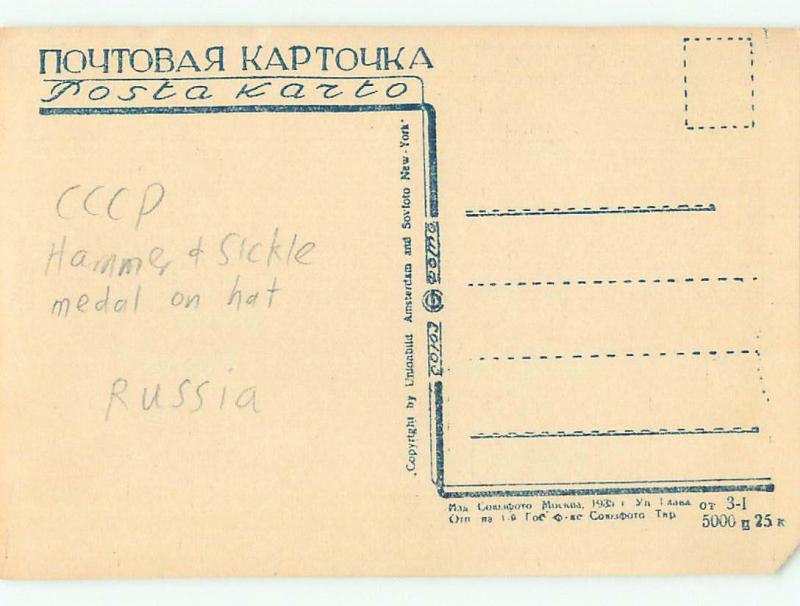 ПОЧТОВАЯ КАРТОЧКА
Posta Karto
CCCP
Hammer & Sickle
medal on hat
RUSSIA
Copyright by Unionbild Amsterdam and Sovfoto New-York
союз фото
Изд Союзфото Москва, 1935 г Уп Глава от 3-I
Отп на 1-й Гос ф-ке Союзфото Тир 5000 ц 25 к